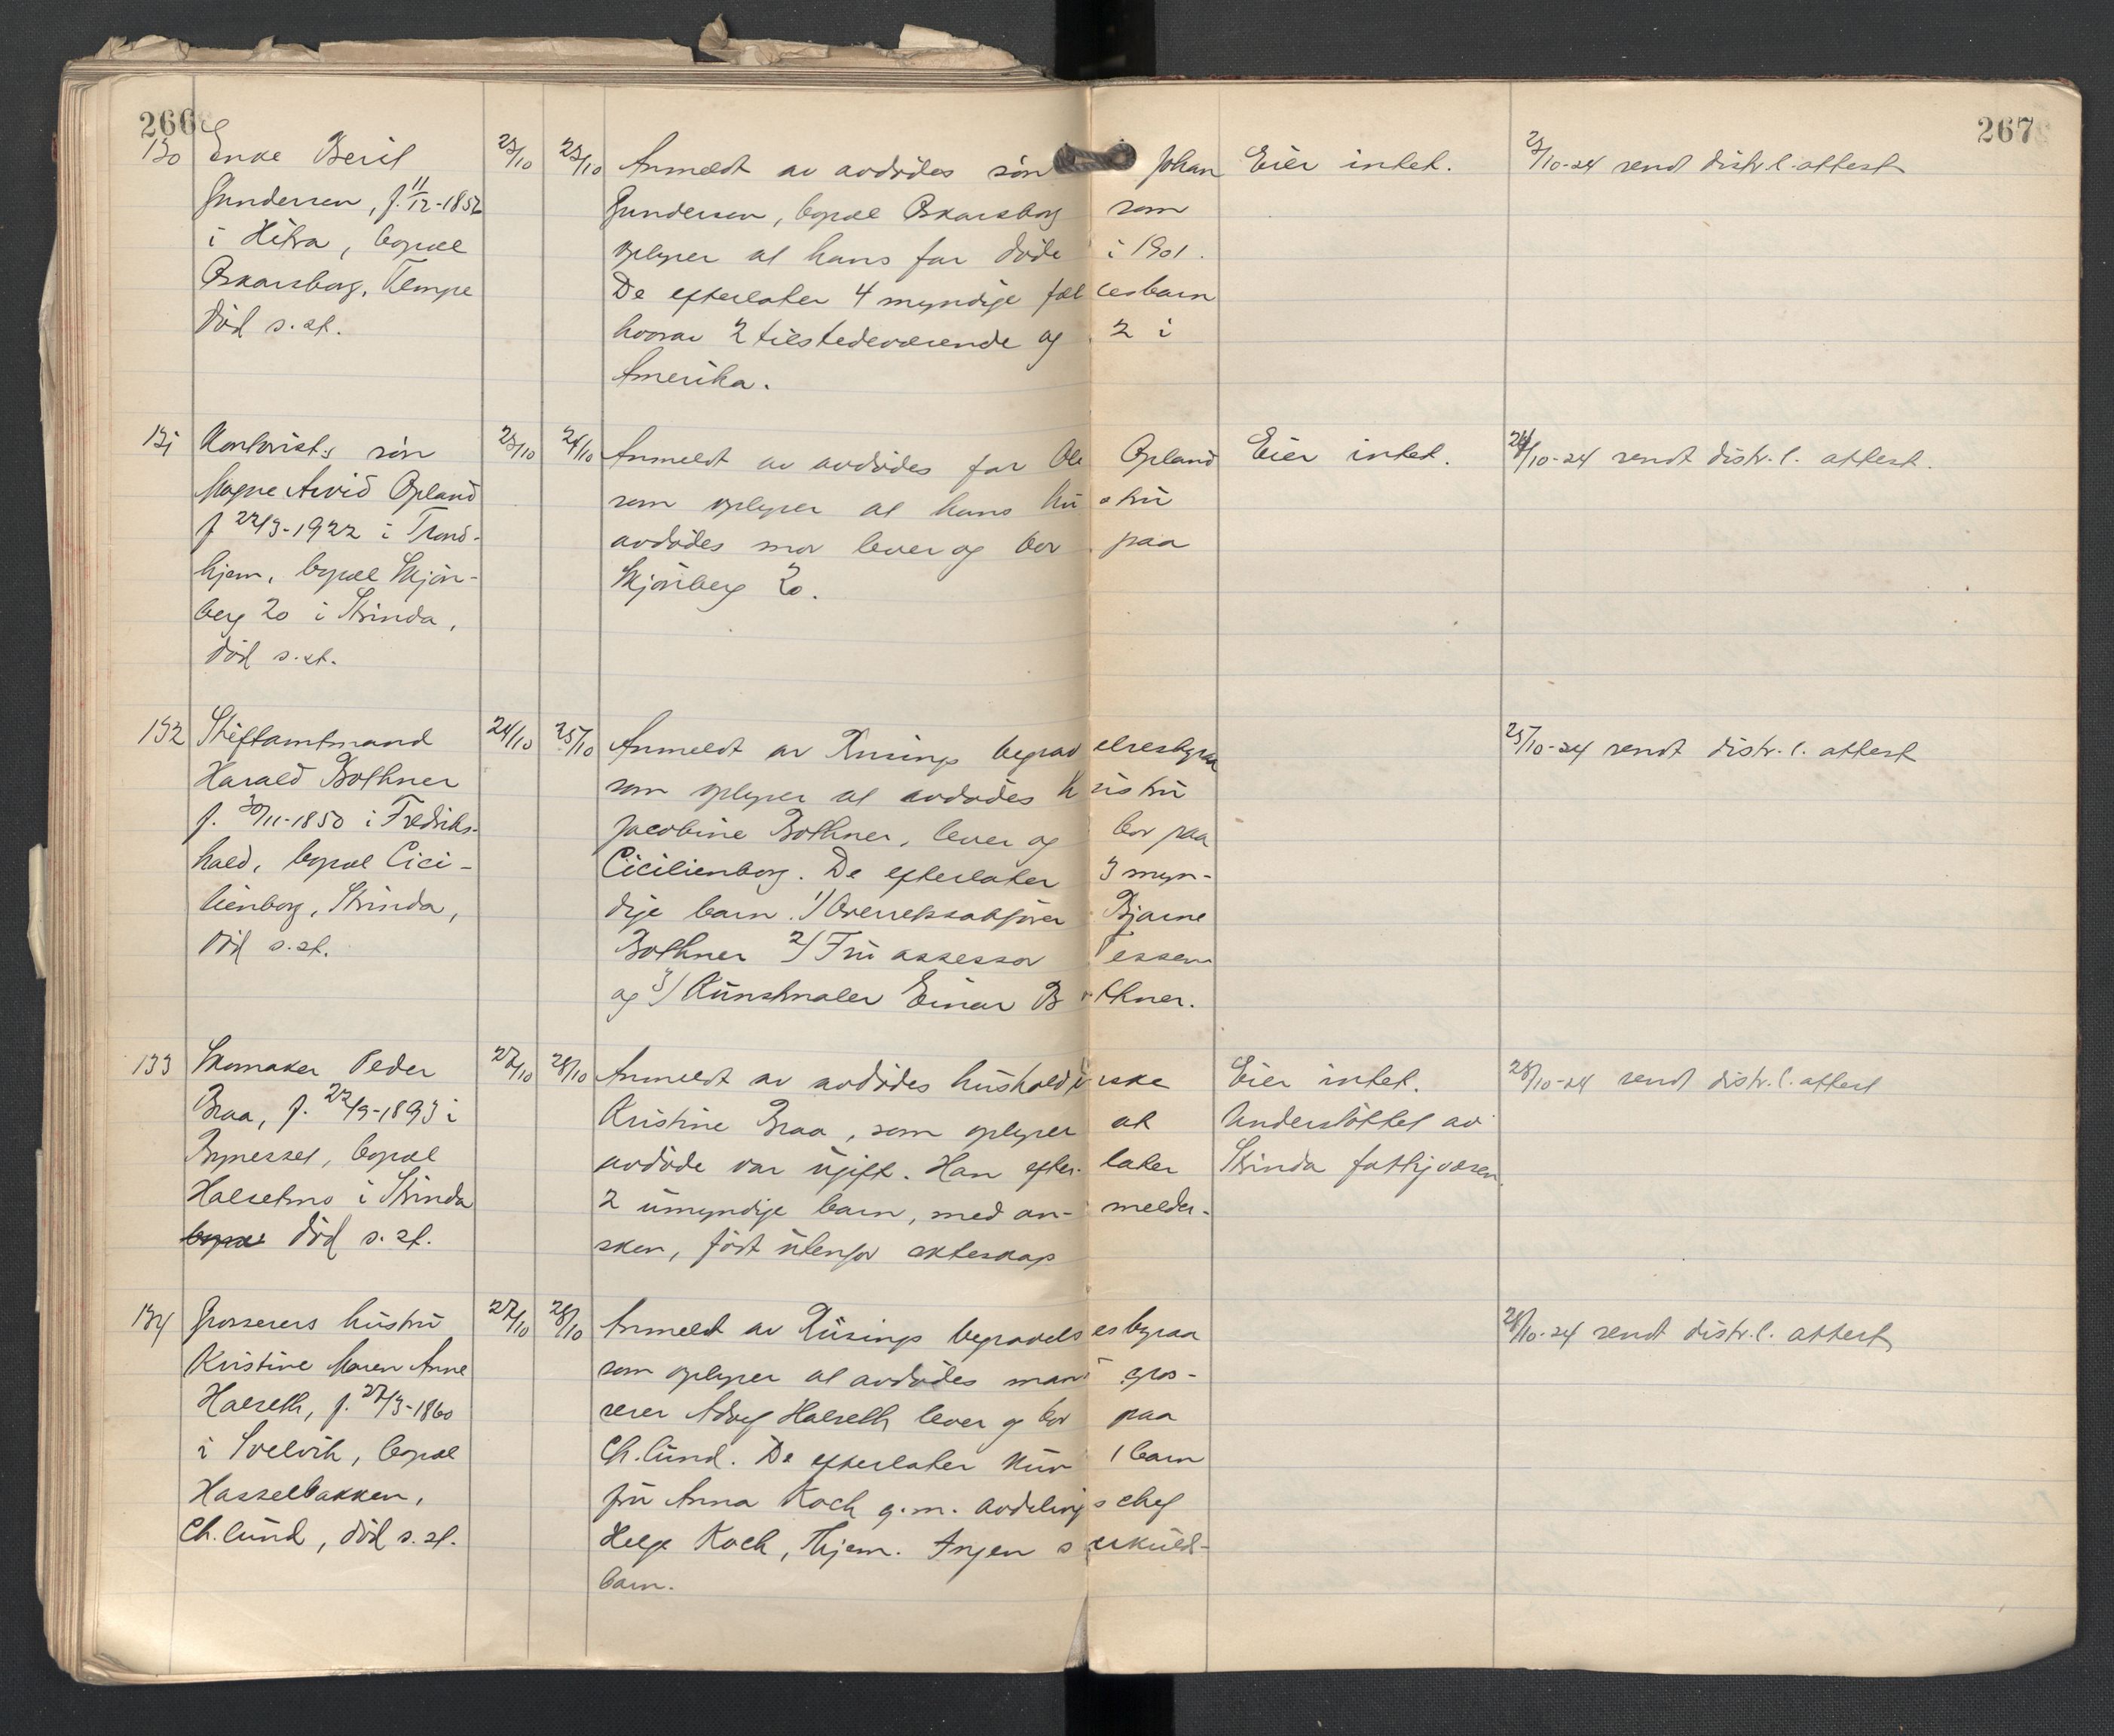 266
267
130
Enke Beril
Gundersen, f. 11/12-1852
i Hitra, bopæl
Oskarsborg, Tempe
död s.st.
23/10
23/10
Anmeldt av avdödes sön Johan
Gundersen, bopæl Oskarsborg som
oplyser at hans far döde i 1901.
De efterlater 4 myndige fællesbarn
hvorav 2 tilstedeværende og 2 i
Amerika.
Eier intet.
23/10-24 sendt distr.l. attest
131
Kontorist.s sön
Magne Arvid Opland
f 22/3-1922 i Trond-
hjem, bopæl Skjön-
berg 20 i Strinda,
död s.st.
23/10
24/10
Anmeldt av avdödes far Ole Opland
som oplyser at hans hustru
avdödes mor lever og bor paa
Skjönberg 20.
Eier intet.
24/10-24 sendt distr.l. attest.
132
Stiftamtmand
Harald Bothner
f. 30/11-1850 i Fredriks-
hald, bopæl Cici-
lienborg, Strinda,
död s.st.
24/10
25/10
Anmeldt av Rusings begravelsesbyraa
som oplyser at avdödes hustru
Jacobine Bothner, lever og bor paa
Cicilienborg. De efterlater 3 myn-
dige barn. 1) Overretssakförer Bjarne
Bothner 2) Fru assessor Tessem
og 3) Kunstmaler Einar Bothner.
25/10-24 sendt distr.l. attest
133
Skomaker Peder
Braa, f. 22/9-1893 i
Bynesset, bopæl
Halsetmo i Strinda
bopæl död s.st.
27/10
28/10
Anmeldt av avdödes husholderske
Kristine Braa, som oplyser at
avdöde var ugift. Han efterlater
2 umyndige barn, med an-melder-
sken, födt utenfor ekteskap
Eier intet.
Understöttet av
Strinda fattigvæsen.
28/10-24 sendt distr.l. attest
134
Grosserers hustru
Kristine Maren Anne
Halseth, f. 27/3-1860
i Svelvik, bopæl
Hasselbakken,
Ch.lund, död s.st.
27/10
28/10
Anmeldt av Rusings begravelsesbyraa
som oplyser at avdödes mand gros-
serer Adolf Halseth lever og bor paa
Ch.lund. De efterlater kun 1 barn
fru Anna Koch g.m. avdelingschef
Helge Koch, Thjem. Ingen særkuld-
barn.
28/10-24 sendt distr.l. attest